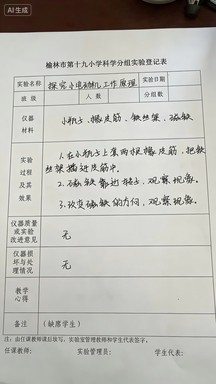 AI生成
榆林市第十九小学科学分组实验登记表
实验名称 探究小电动机工作原理 实验日期
班级 人数 分组数
仪器材料 小转子、橡皮筋、铁丝架、磁铁
实验过程及其效果
1.在小转子上套两根橡皮筋，把铁
丝架插进皮筋中。
2.磁铁靠近转子，观察现象。
3.改变磁铁的方向，观察现象。
仪器质量或实验改进意见 无
仪器损坏与处理情况 无
教学心得
备注 （缺席学生）
注：由任课教师课后填写，实验室管理教师和学生代表签字。
任课教师： 实验管理员： 学生代表：